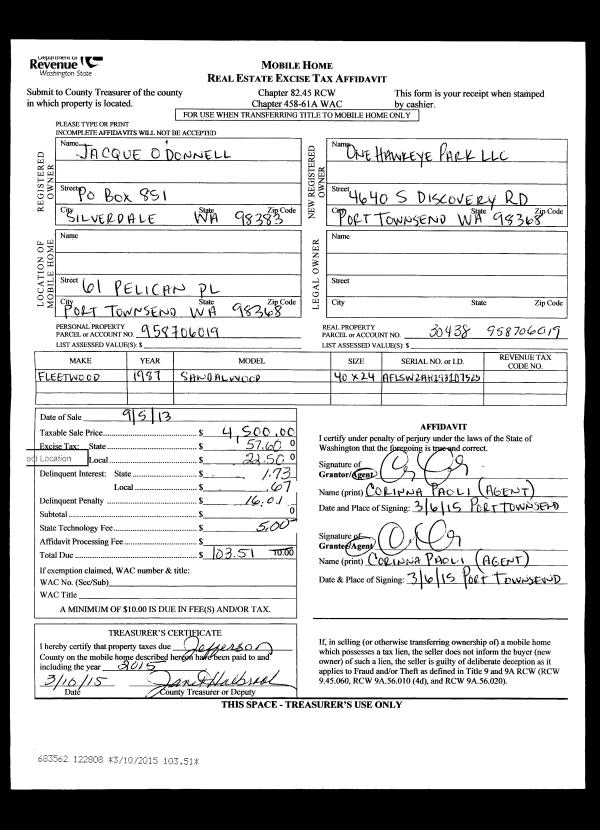 Department of
Revenue
Washington State
MOBILE HOME
REAL ESTATE EXCISE TAX AFFIDAVIT
Submit to County Treasurer of the county
in which property is located.
Chapter 82.45 RCW
Chapter 458-61A WAC
This form is your receipt when stamped
by cashier.
FOR USE WHEN TRANSFERRING TITLE TO MOBILE HOME ONLY
PLEASE TYPE OR PRINT
INCOMPLETE AFFIDAVITS WILL NOT BE ACCEPTED
REGISTERED OWNER
Name JACQUE O DONNELL
Street PO BOX 851
City State Zip Code
SILVERDALE WA 98383
NEW REGISTERED OWNER
Name ONE HAWKEYE PARK LLC
Street 4640 S DISCOVERY RD
City State Zip Code
PORT TOWNSEND WA 98368
LOCATION OF MOBILE HOME
Name
Street 61 PELICAN PL
City State Zip Code
PORT TOWNSEND WA 98368
LEGAL OWNER
Name
Street
City State Zip Code
PERSONAL PROPERTY
PARCEL or ACCOUNT NO. 958706019
LIST ASSESSED VALUE(S): $
REAL PROPERTY
PARCEL or ACCOUNT NO. 30438 958706019
LIST ASSESSED VALUE(S): $
MAKE YEAR MODEL SIZE SERIAL NO. or I.D. REVENUE TAX CODE NO.
FLEETWOOD 1987 SANDALWOOD 40 X 24
Date of Sale 9/5/13
Taxable Sale Price $ 4,500.00
Excise Tax: State $ 57.60 0
ect Location Local $ 22.50 0
Delinquent Interest: State $ 1.73
Local $ .67
Delinquent Penalty $ 16.01
Subtotal $ 0
State Technology Fee $ 5.00
Affidavit Processing Fee $
Total Due $ 103.51 10.00
If exemption claimed, WAC number & title:
WAC No. (Sec/Sub)
WAC Title
A MINIMUM OF $10.00 IS DUE IN FEE(S) AND/OR TAX.
AFFIDAVIT
I certify under penalty of perjury under the laws of the State of
Washington that the foregoing is true and correct.
Signature of
Grantor/Agent
Name (print) CORINNA PAOLI (AGENT)
Date and Place of Signing: 3/6/15 PORT TOWNSEND
Signature of
Grantee/Agent
Name (print) CORINNA PAOLI (AGENT)
Date & Place of Signing: 3/6/15 PORT TOWNSEND
TREASURER'S CERTIFICATE
I hereby certify that property taxes due Jefferson
County on the mobile home described hereon have been paid to and
including the year 2015
3/10/15
Date County Treasurer or Deputy
If, in selling (or otherwise transferring ownership of) a mobile home
which possesses a tax lien, the seller does not inform the buyer (new
owner) of such a lien, the seller is guilty of deliberate deception as it
applies to Fraud and/or Theft as defined in Title 9 and 9A RCW (RCW
9.45.060, RCW 9A.56.010 (4d), and RCW 9A.56.020).
THIS SPACE - TREASURER'S USE ONLY
683562 122808 *3/10/2015 103.51*